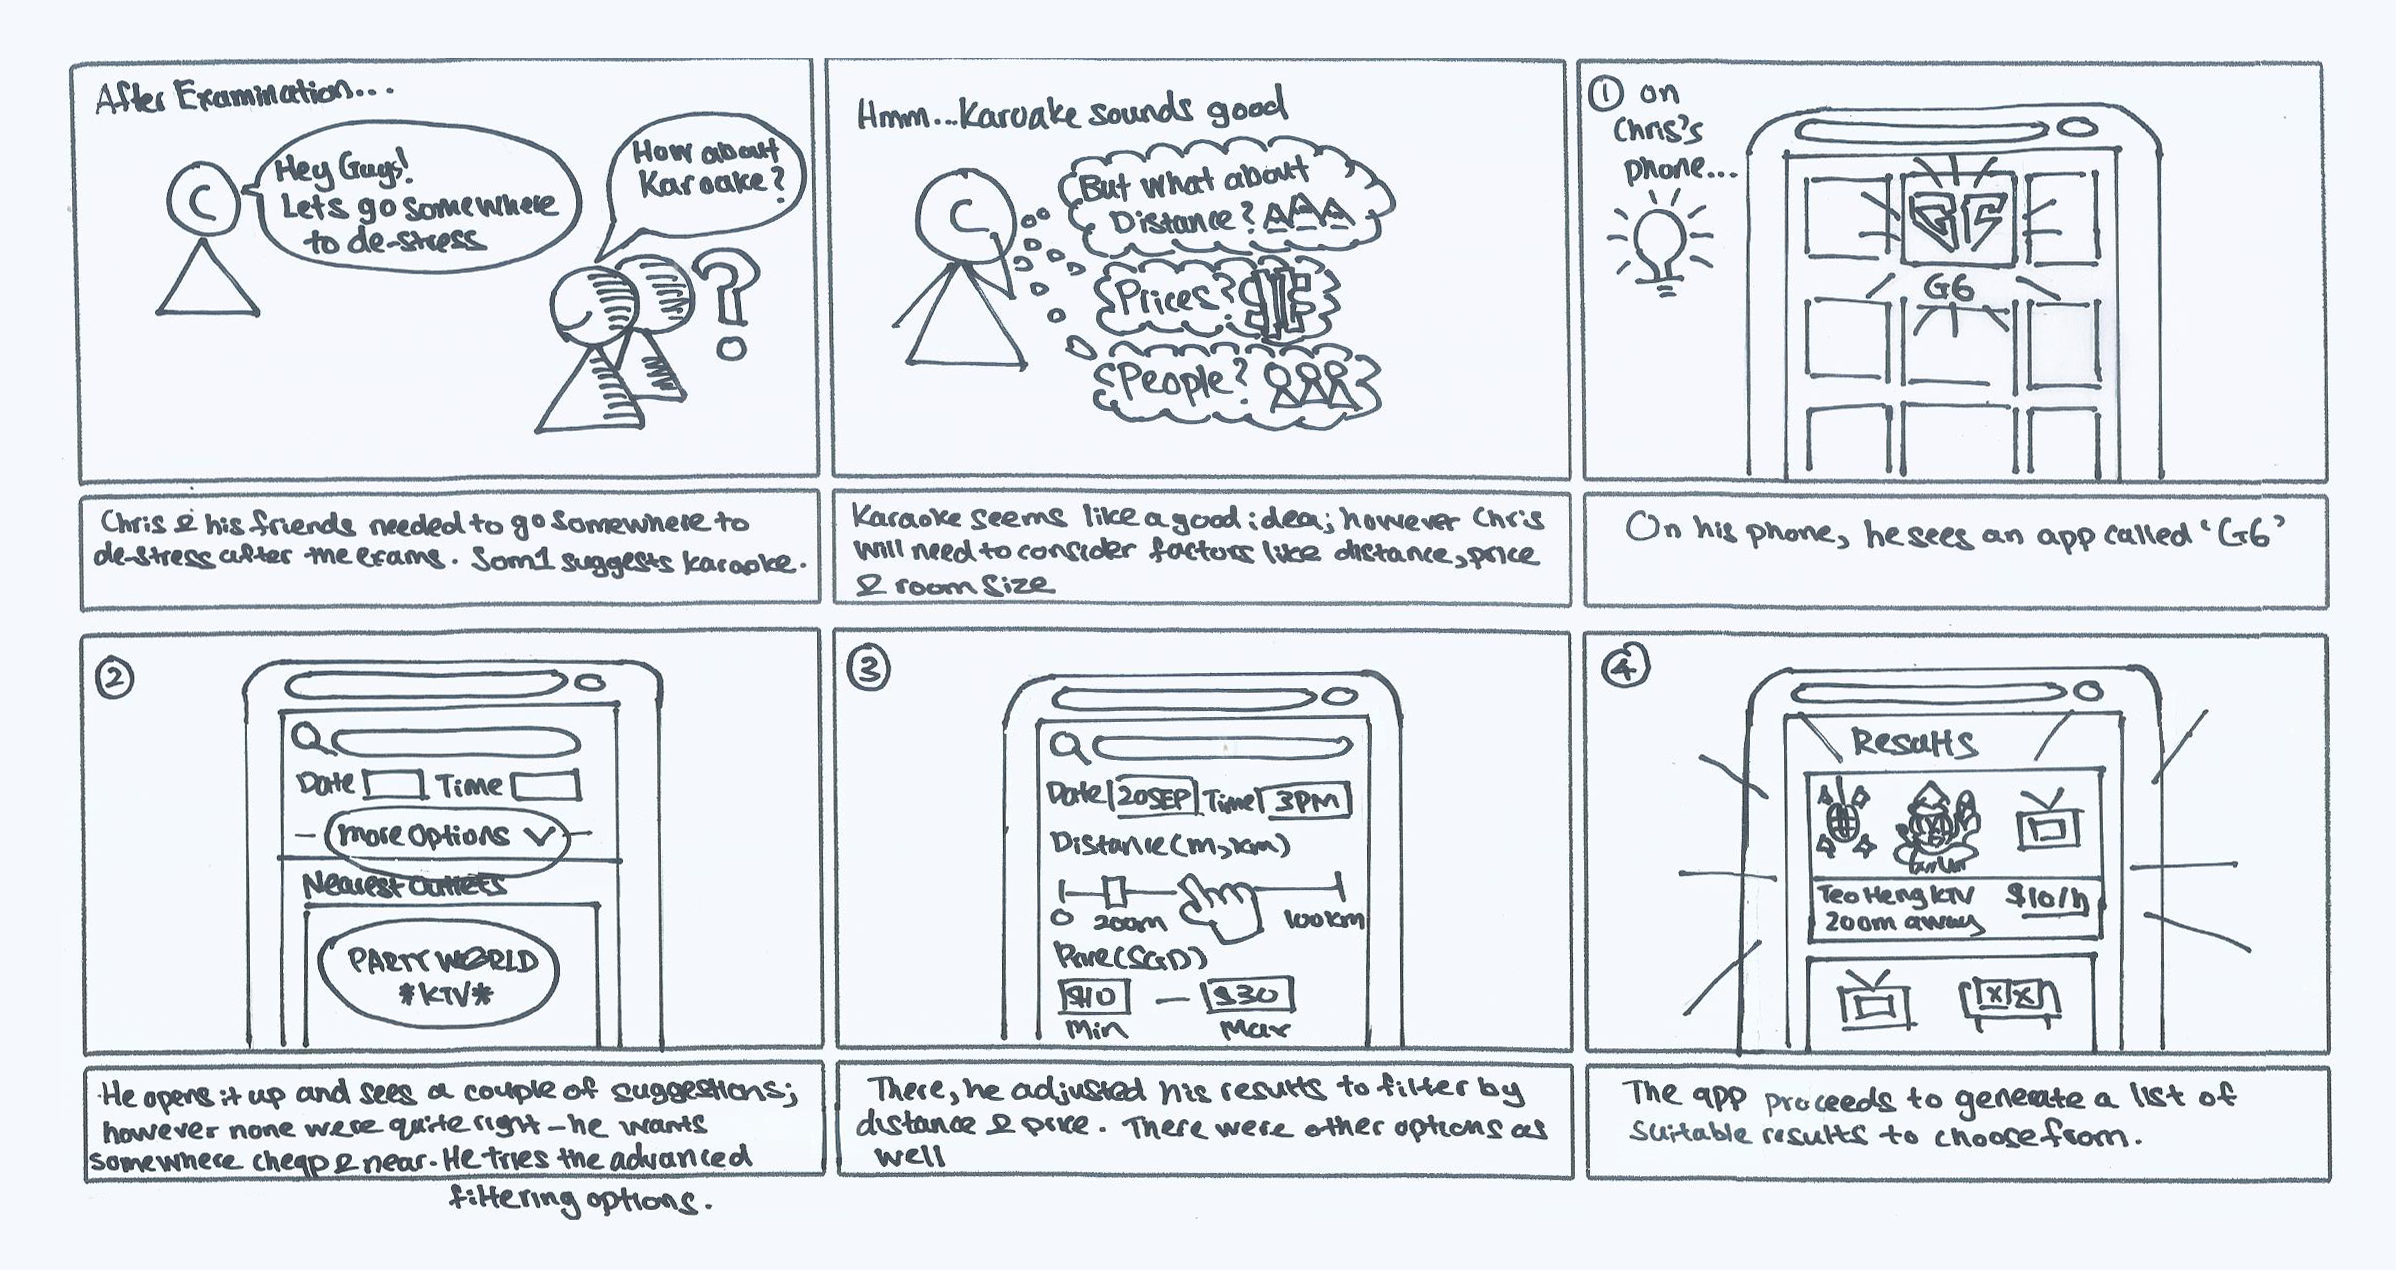 After Examination...
Hey Guys!
Lets go somewhere
to de-stress
How about
Karoake?
?
C
Chris & his friends needed to go somewhere to
de-stress after the exams. Som1 suggests karaoke.
Hmm...Karoake sounds good
C
But what about
Distance?
Prices?
People?
Karaoke seems like a good idea; however Chris
will need to consider factors like distance, price
& room size
1 on
Chris's
phone...
G6
On his phone, he sees an app called 'G6'
2
Date Time
More Options
Nearest Outlets
PARTY WORLD
*KTV*
He opens it up and sees a couple of suggestions;
however none were quite right - he wants
somewhere cheap & near. He tries the advanced
filtering options.
3
Date 20SEP Time 3PM
Distance (m, km)
0 200m 100km
Price (SGD)
$10 — $30
Min Max
There, he adjusted his results to filter by
distance & price. There were other options as
well
4
Results
Teo Heng KTV $10/h
200m away
The app proceeds to generate a list of
suitable results to choose from.